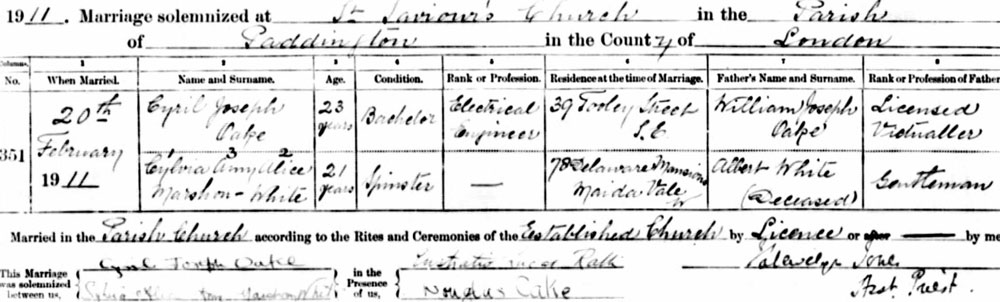 1911. Marriage solemnized at St Saviour's Church in the Parish
of Paddington in the County of London
Columns. 1 2 3 4 5 6 7 8
No. When Married. Name and Surname. Age. Condition. Rank or Profession. Residence at the time of Marriage. Father's Name and Surname. Rank or Profession of Father
351 20th February 1911
Cyril Joseph Oake 23 years Bachelor Electrical Engineer 39 Tooley Street S.E. William Joseph Oake Licensed Victualler
1 3 2
Cylvia Amy Alice Marshon-White 21 years Spinster — 78 Delaware Mansions Maida Vale W Albert White (Deceased) Gentleman
Married in the Parish Church according to the Rites and Ceremonies of the Established Church by Licence or after — by me
This Marriage was solemnized between us, Cyril Joseph Oake
in the Presence of us, Douglas Oake
Jones
Asst. Priest.